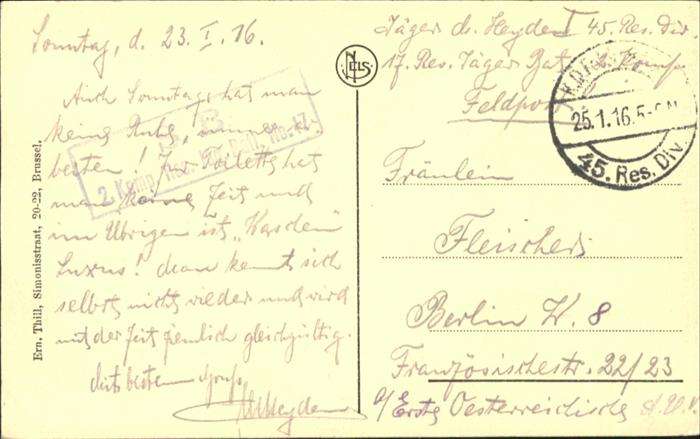 Sonntag, d. 23. I. 16.
Auch Sonntags hat man
keine Ruh,
! Zur Toilette hat
man keine Zeit und
im Übrigen ist „Waschen
Luxus“! Man kennt sich
selbst nicht wieder und wird
mit der Zeit ziemlich gleichgültig.
Mit bestem Gruß,
Heyden
Ern. Thill, Simonisstraat, 20-22, Brussel.
NELS
2. Komp. Res. Jäg. Batl. No. 17.
Jäger d. Heyden 45. Res. Div.
17. Res. Jäger Bat. 2. Komp.
Feldpost
25.1.16.5-6N
45. Res. Div.
Fräulein
Fleischer
Berlin W. 8
Französischestr. 22/23
a/ Erste Oesterreichische